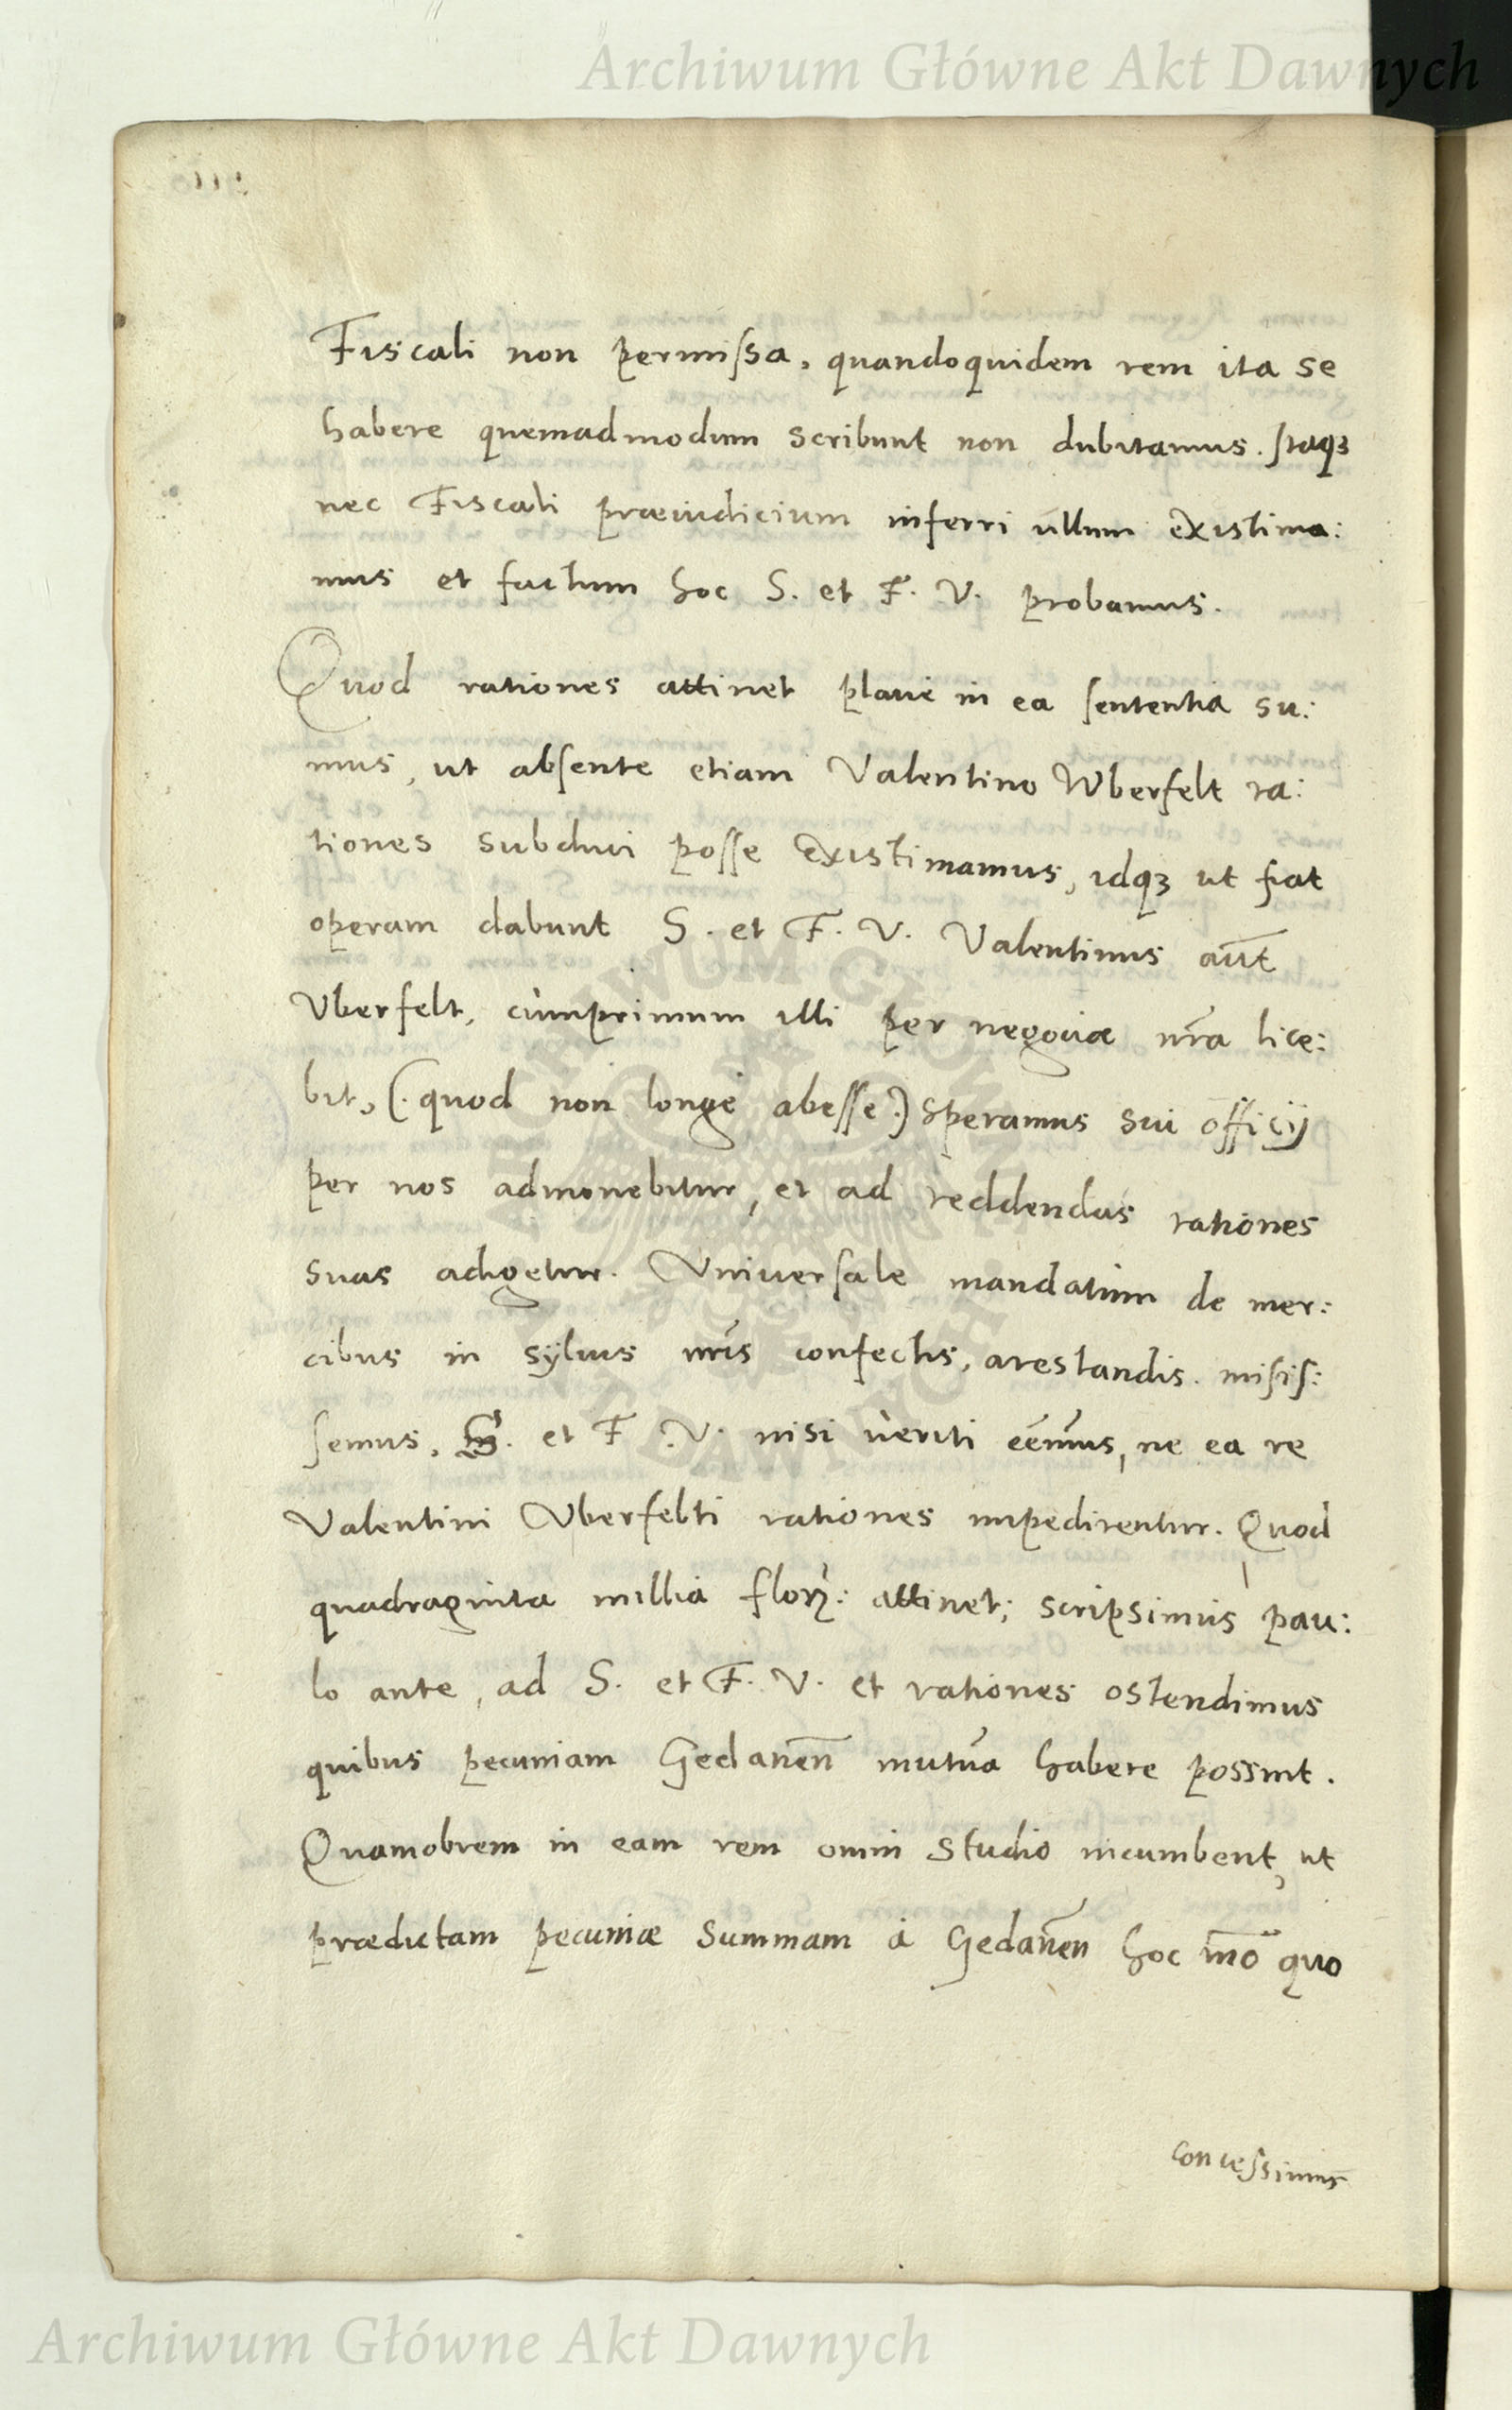 Archiwum Główne Akt Dawnych
Fiscali non permissa, quandoquidem rem ita se
habere quemadmodum scribunt non dubitamus. Itaqꝫ
nec Fiscali præiudicium inferri ullum existima:
mus et factum hoc S. et F. V. probamus.
Quod rationes attinet planè in ea sententia su:
mus, ut absente etiam Valentino Wberfelt ra:
tiones subduci posse existimamus, idqꝫ ut fiat
operam dabunt S. et F. V. Valentinus aut̃
Vberfelt, cumprimum illi per negocia nr̃a lice:
bit, (.quod non longè abesse.) speramus sui officij
per nos admonebitur, et ad reddendas rationes
suas adigetur. Vniversale mandatum de mer:
cibus in sÿlvis nr̃is confectis, arestandis. misis:
semus, S. et F. V. nisi veriti eẽmus, ne ea re
Valentini Vberfelti rationes impedirentur. Quod
quadraginta millia florꝝ: attinet; scripsimus pau:
lo ante, ad S. et F. V. et rationes ostendimus
quibus pecuniam Gedaneñ mutua habere possint.
Quamobrem in eam rem omni studio incumbent, ut
prædictam pecuniæ summam à Gedaneñ hoc mõ quo
concessimus
ARCHIWUM GŁÓWNE AKT DAWNYCH
Archiwum Główne Akt Dawnych